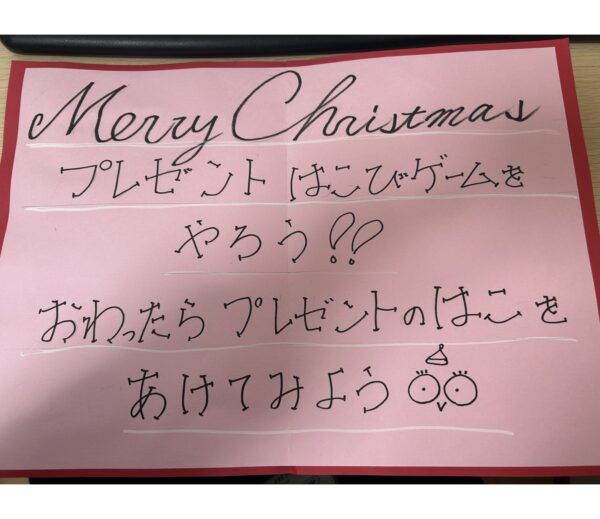 Merry Christmas
プレゼント はこびゲームを
やろう!!
おわったら プレゼントのはこを
あけてみよう